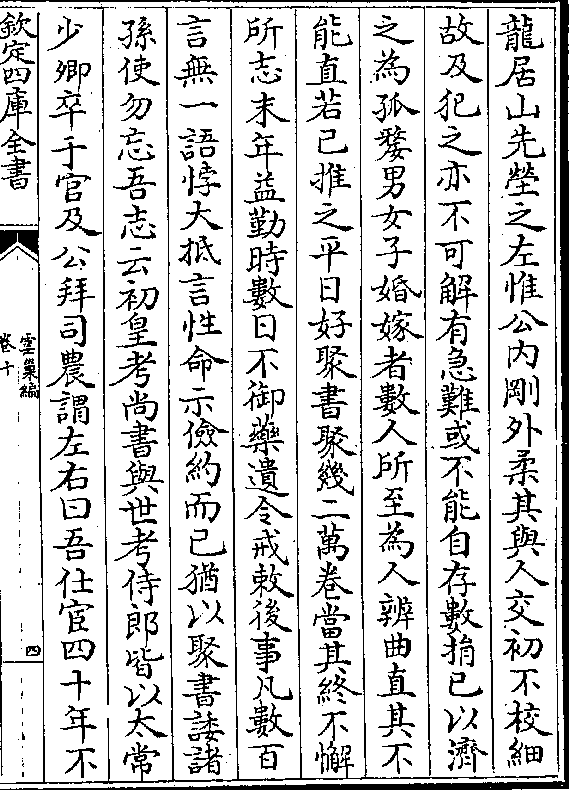 龍居山先塋之左惟公内剛外柔其與人交初不校細
故及犯之亦不可解有急難或不能自存數捐已以濟
之為孤嫠男女子婚嫁者數人所至為人辨曲直其不
能直若已推之平日好聚書聚幾二萬卷當其終不懈
所志末年益勤時數日不御藥遺令戒敕後事凡數百
言無一語悖大抵言性命示儉約而已猶以聚書諉諸
孫使勿忘吾志云初皇考尚書與世考侍郎皆以太常
少卿卒于官及公拜司農謂左右曰吾仕宦四十年不
欽定四庫全書
雲巢編
卷十
四